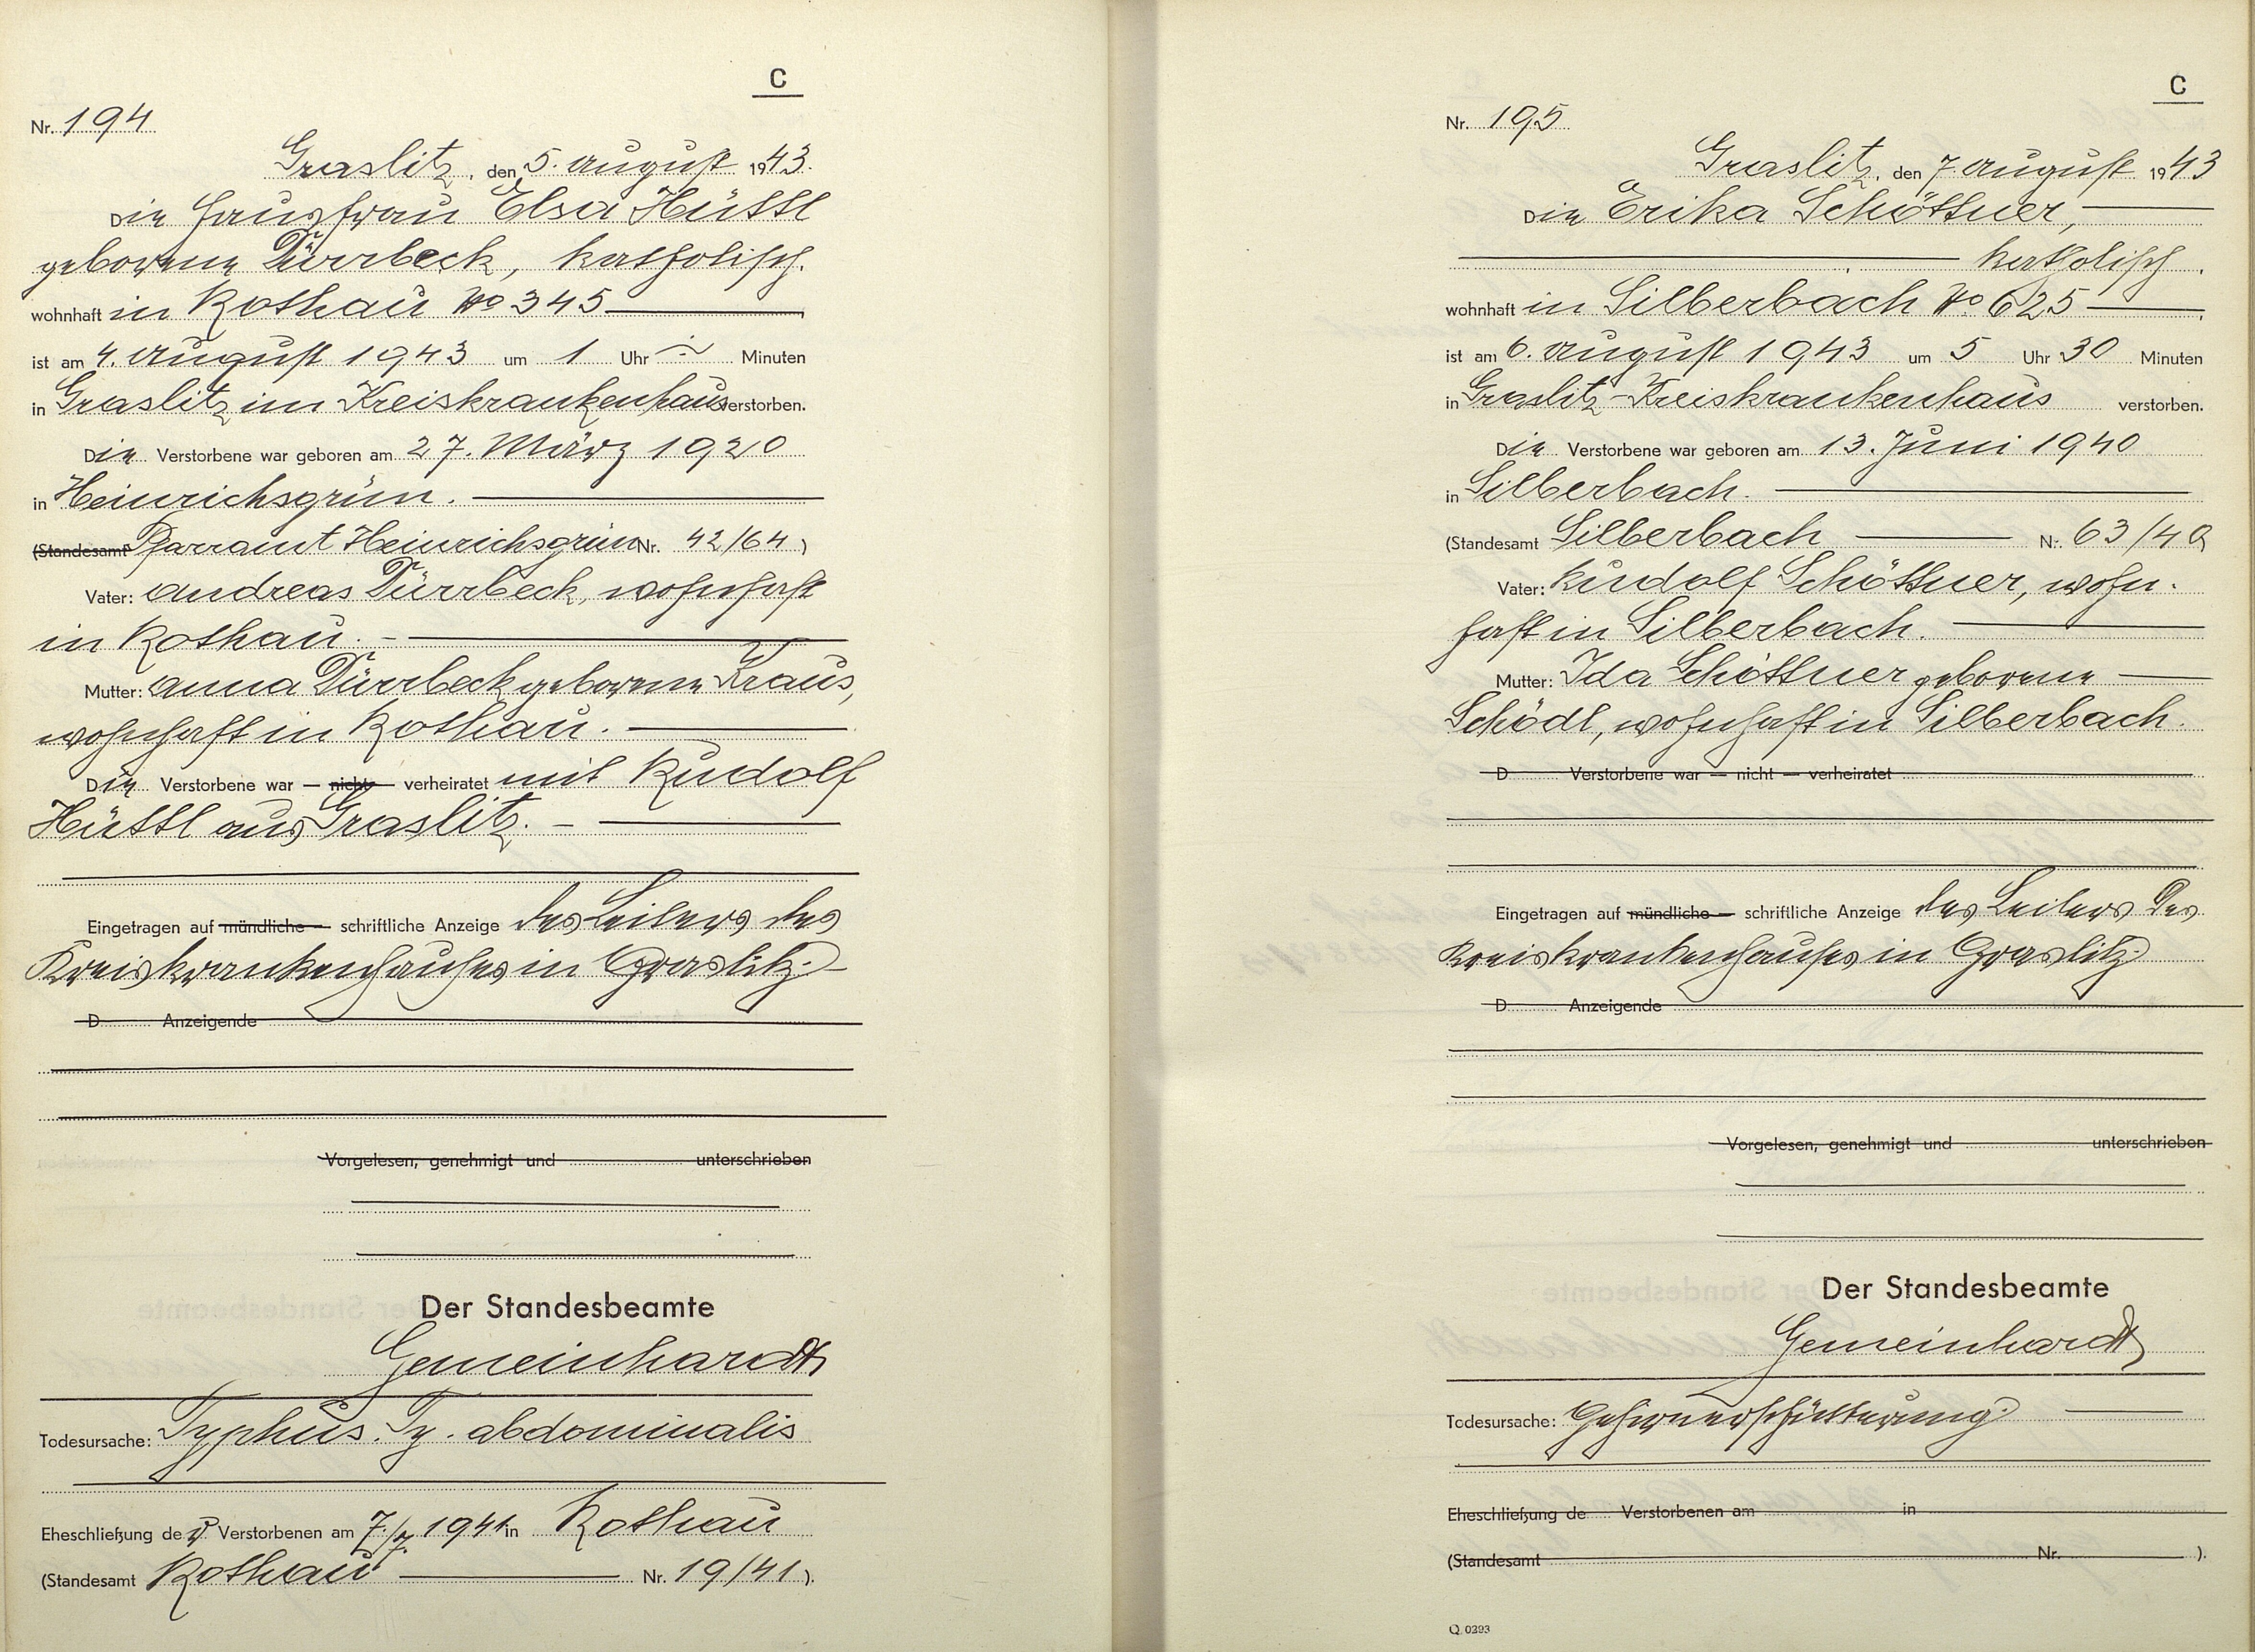 C
Nr. 194
Graslitz, den 5. August 1943.
Die Hausfrau Elsa Hüttl
geborene Dürrbeck, katholisch.
wohnhaft in Rothau No 345
ist am 4. August 1943 um 1 Uhr ÷ Minuten
in Graslitz im Kreiskrankenhaus verstorben.
Die Verstorbene war geboren am 27. März 1920
in Heinrichsgrün.
(Standesamt Pfarramt Heinrichsgrün Nr. 42/64)
Vater: Andreas Dürrbeck, wohnhaft
in Rothau.
Mutter: Anna Dürrbeck geborene Kraus,
wohnhaft in Rothau.
Die Verstorbene war — nicht — verheiratet mit Rudolf
Hüttl aus Graslitz.
Eingetragen auf mündliche — schriftliche Anzeige des Leiters des
Kreiskrankenhauses in Graslitz.
D Anzeigende
Vorgelesen, genehmigt und unterschrieben
Der Standesbeamte
Gemeinhardt
Todesursache: Typhus. Ty. abdominalis
Eheschließung der Verstorbenen am 7./7. 1941 in Rothau
(Standesamt Rothau Nr. 19/41).
C
Nr. 195
Graslitz, den 7. August 1943
Die Erika Schöttner,
katholisch.
wohnhaft in Silberbach No. 625
ist am 6. August 1943 um 5 Uhr 30 Minuten
in Graslitz-Kreiskrankenhaus verstorben.
Die Verstorbene war geboren am 13. Juni 1940
in Silberbach.
(Standesamt Silberbach Nr. 63/40)
Vater: Rudolf Schöttner, wohn-
haft in Silberbach.
Mutter: Ida Schöttner geborene
Schödl, wohnhaft in Silberbach.
D Verstorbene war — nicht — verheiratet
Eingetragen auf mündliche — schriftliche Anzeige des Leiters des
Kreiskrankenhauses in Graslitz.
D Anzeigende
Vorgelesen, genehmigt und unterschrieben
Der Standesbeamte
Gemeinhardt
Todesursache: Gehirnerschütterung.
Eheschließung de Verstorbenen am in
(Standesamt Nr. ).
Q. 0293